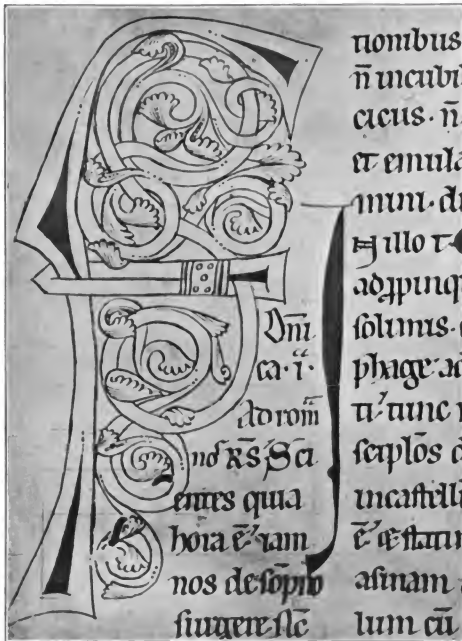 Dn̄i
ca·i·
Ad rom̄
Sci
entes quia
hora ē iam
nos de sōpno
surgere sic̄
tionibus
n̄ in cubil
n̄
et emula
mini·
illo t
adp̱pinq
solimis·
phage·ad
ti᾽ tunc
scipl̄os
in castell
ē᾽ & statim
asinam
lum cū